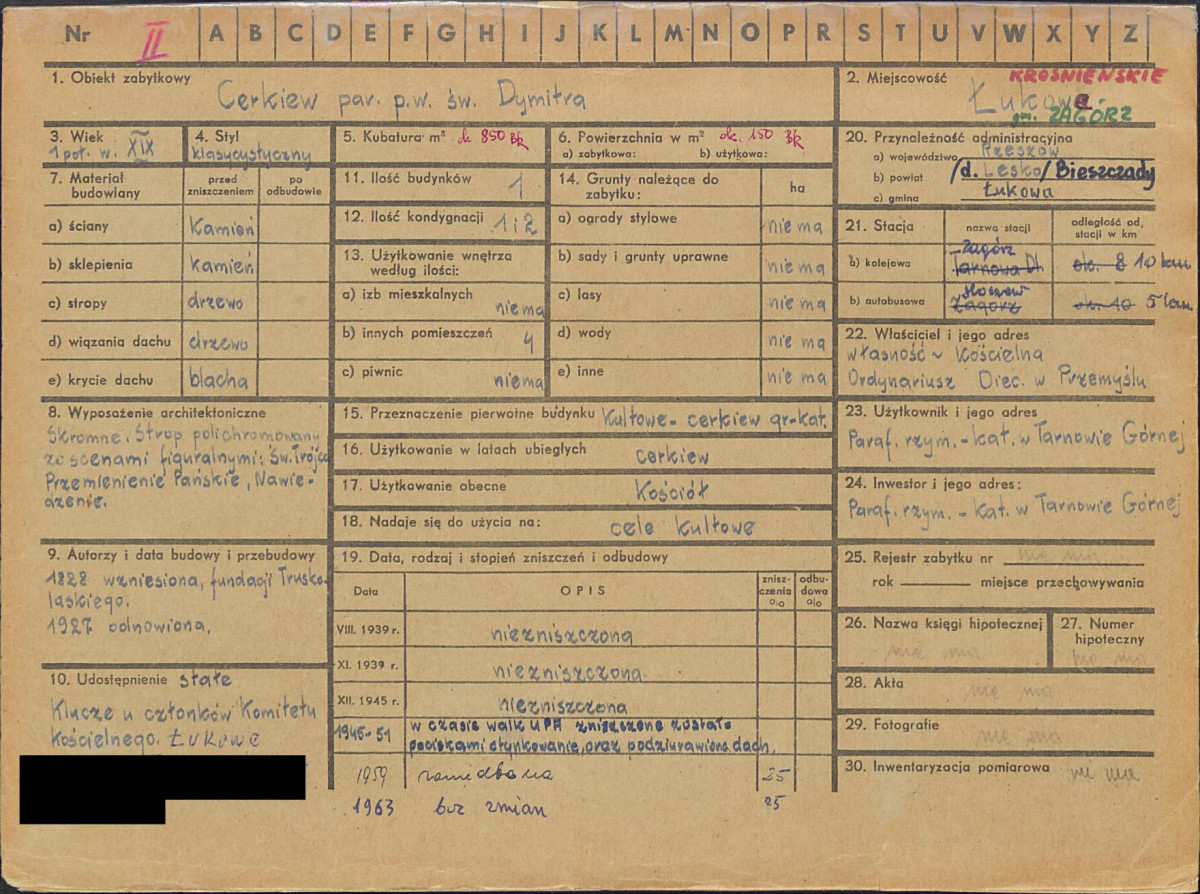 Nr II A B C D E F G H I J K L M N O P R S T U V W X Y Z
1. Obiekt zabytkowy
Cerkiew par. p.w. św. Dymitra
2. Miejscowość
KROŚNIEŃSKIE
Łukowe
gm. ZAGÓRZ
3. Wiek
1 poł. w. XIX
4. Styl
klasycystyczny
5. Kubatura m³ ok 850
6. Powierzchnia w m² ok. 150
a) zabytkowa: b) użytkowa:
20. Przynależność administracyjna
a) województwo Rzeszów
b) powiat /d. Lesko/ Bieszczady
c) gmina Łukowa
7. Materiał budowlany
przed zniszczeniem
po odbudowie
a) ściany Kamień
b) sklepienia kamień
c) stropy drzewo
d) wiązania dachu drzewo
e) krycie dachu blacha
11. Ilość budynków 1
12. Ilość kondygnacji 1 i 2
13. Użytkowanie wnętrza
według ilości:
a) izb mieszkalnych niema
b) innych pomieszczeń 4
c) piwnic niema
14. Grunty należące do
zabytku:
ha
a) ogrody stylowe niema
b) sady i grunty uprawne niema
c) lasy niema
d) wody niema
e) inne niema
21. Stacja
nazwa stacji
odległość od.
stacji w km
Zagórz
a) kolejowa Tarnowa Dl ok. 8 10 km
b) autobusowa Zagórz ok. 10 5 km
22. Właściciel i jego adres
własność ~ Kościelna
Ordynariusz Diec. w Przemyślu
8. Wyposażenie architektoniczne
Skromne. Strop polichromowany
ze scenami figuralnymi: Św. Trójca
Przemienienie Pańskie, Nawie-
dzenie.
15. Przeznaczenie pierwotne budynku Kultowe - cerkiew gr-kat.
16. Użytkowanie w latach ubiegłych cerkiew
17. Użytkowanie obecne Kościół
18. Nadaje się do użycia na: cele Kultowe
23. Użytkownik i jego adres
Paraf. rzym. - kat. w Tarnowie Górnej
24. Inwestor i jego adres:
Paraf. rzym. - Kat. w Tarnowie Górnej
9. Autorzy i data budowy i przebudowy
1828 wzniesiona, fundacji Trusko-
laskiego.
1927 odnowiona.
19. Data, rodzaj i stopień zniszczeń i odbudowy
Data
OPIS
znisz-
czenia
%
odbu-
dowa
%
VIII. 1939 r. niezniszczona
XI. 1939 r. niezniszczona
XII. 1945 r. niezniszczona
1945-51 w czasie walk UPA zniszczone zostało
pociskami otynkowanie, oraz podziurawiono dach.
1959 zaniedbana 25
1963 bez zmian 25
25. Rejestr zabytku nr nie ma
rok miejsce przechowywania
26. Nazwa księgi hipotecznej
nie ma
27. Numer
hipoteczny
nie ma
28. Akta
nie ma
29. Fotografie
nie ma
30. Inwentaryzacja pomiarowa nie ma
10. Udostępnienie stałe
Klucze u członków Komitetu
Kościelnego. Łukowe